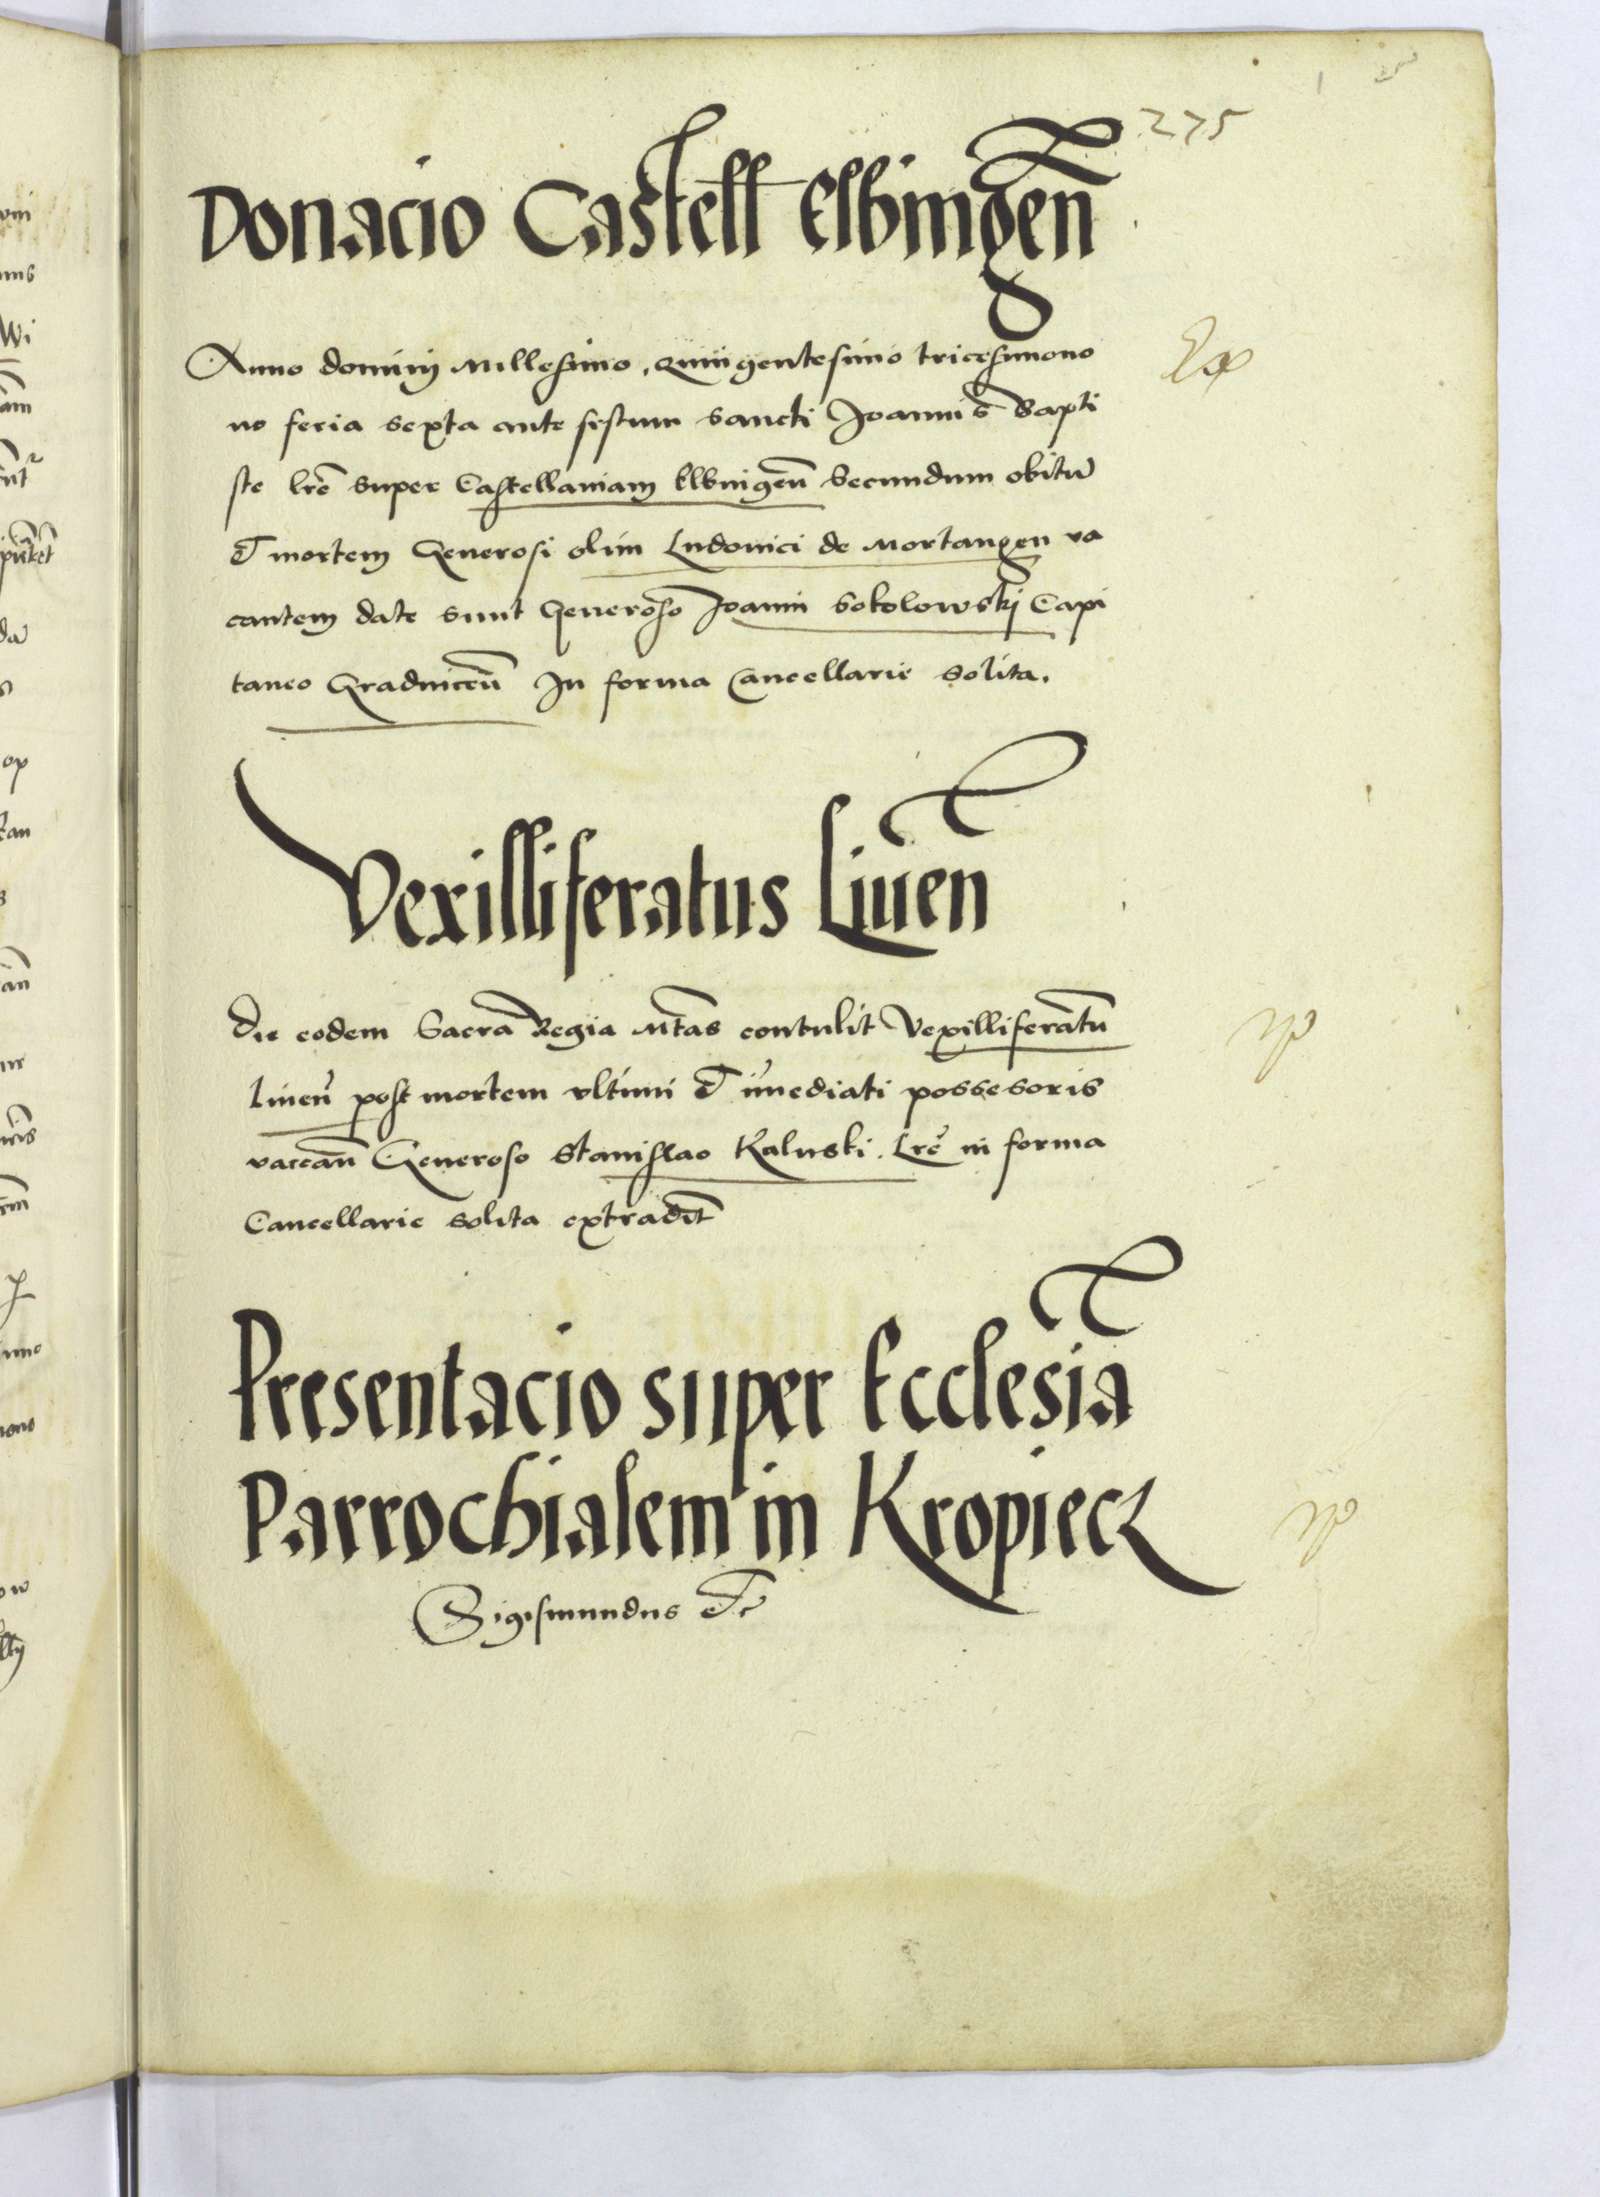 275
Donacio Castell Elbingen
Anno dominj Millesimo, quingentesimo tricesimono
no feria sexta ante festum sancti Joannis Bapti
ste lre super Castellaniam Elbingen secundum obitu
et mortem Generosi olim Ludouici de Mortangen va
cantem date sunt Generoso Joanni Sokolowskj Capi
taneo Gradnicen In forma Cancellarie solita.
Vexilliferatus Liuen
Die eodem Sacra Regia Mtas contulit Vexilliferatu
Liuen post mortem vltimi et imediati possesoris
vaccan Generoso Stanislao Kaluski. Lre in forma
Cancellarie solita extradit
Presentacio super Ecclesia
Parrochialem in Kropiecz
Sigismundus etc